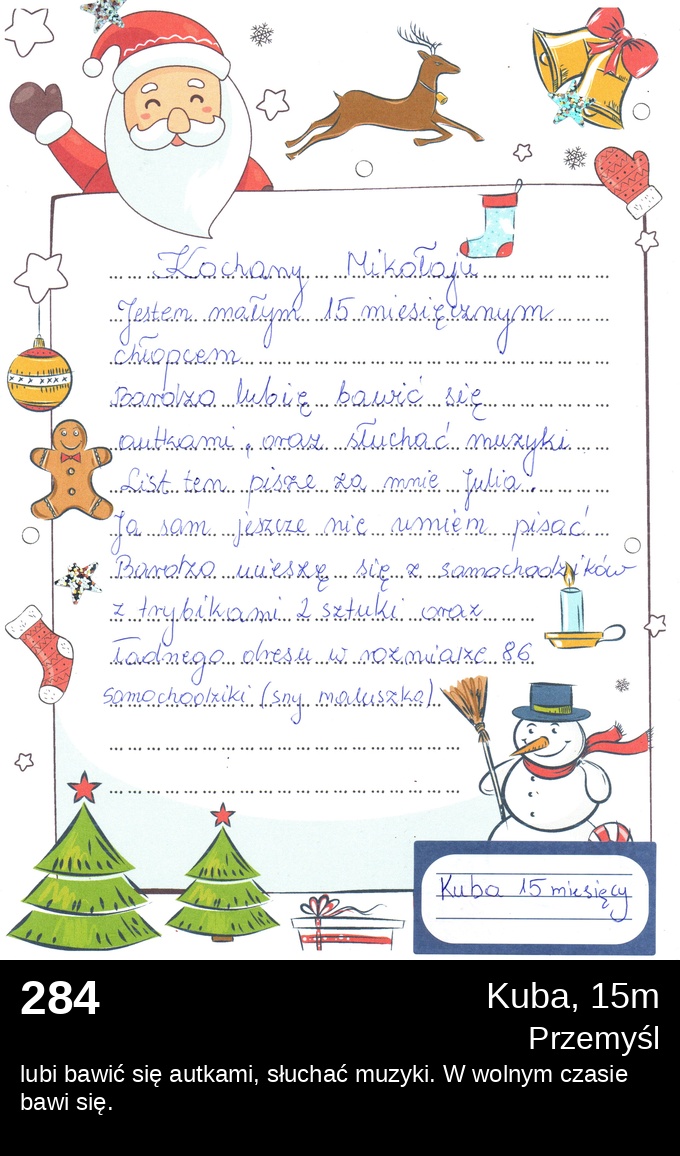 Kochany Mikołaju
Jestem małym 15 miesięcznym
chłopcem
Bardzo lubię bawić się
autkami, oraz słuchać muzyki.
List ten pisze za mnie Julia.
Ja sam jeszcze nie umiem pisać
Bardzo ucieszę się z samochodzików
z trybikami 2 sztuki oraz
ładnego dresu w rozmiarze 86
samochodziki (sny maluszka)
Kuba 15 miesięcy
284
Kuba, 15m
Przemyśl
lubi bawić się autkami, słuchać muzyki. W wolnym czasie
bawi się.